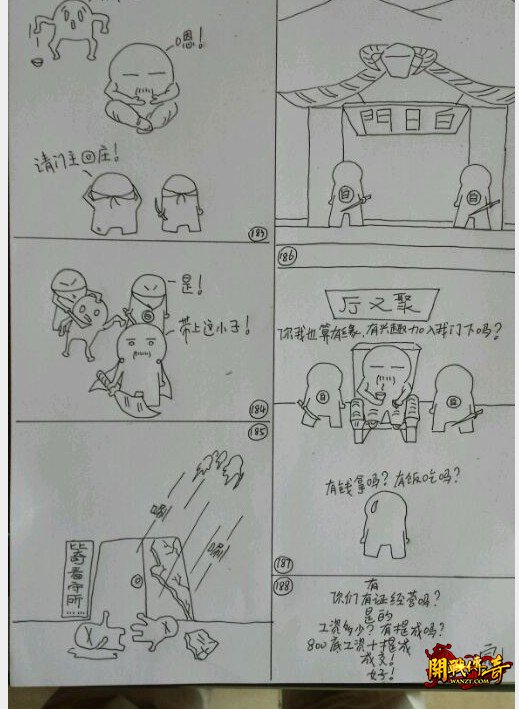 嗯！
请门主回庄！
183
是！
带上这小子！
184
185
唰！
唰！
比奇看守所
白日門
白
白
186
聚义厅
你我也算有缘，有兴趣加入我门下吗？
白
白
有钱拿吗？有饭吃吗？
187
188
有
你们有证经营吗？
是的
工资多少？有提成吗？
800底工资+提成
成交！
好！
開戰傳奇
WWW.WANZT.COM